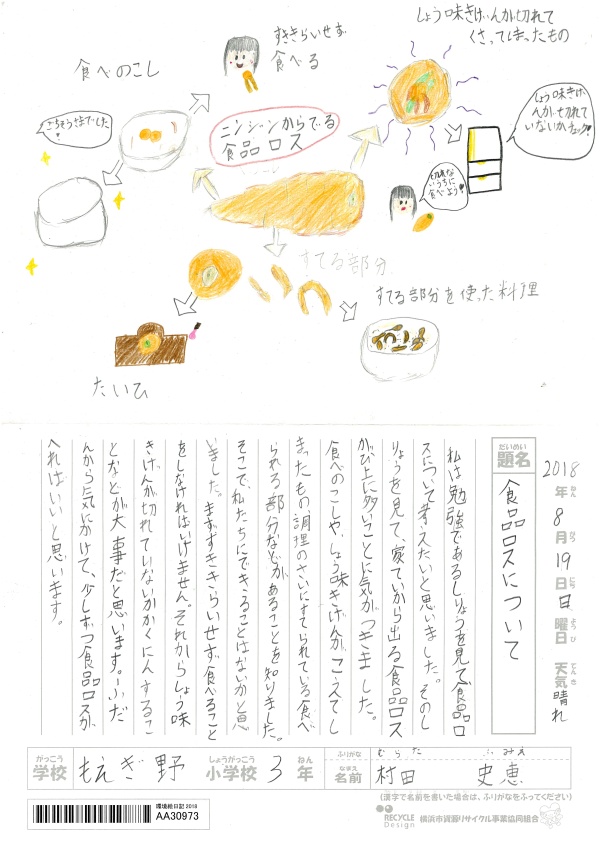 しょう味きげんが切れて
くさってしまったもの
すききらいせず
食べる
食べのこし
ごちそうさまでした
ニンジンからでる
食品ロス
しょう味きげ
んが切れて
いないかチェック
切れな
いうちに
食べよう
すてる部分
すてる部分を使った料理
たいひ
2018年8月19日日曜日 天気晴れ
ねん がつ にち ようび てんき
だいめい
題名
食品ロスについて
私は勉強であるしりょうを見て食品ロ
スについて考えたいと思いました。そのし
りょうを見て、家ていから出る食品ロス
がび上に多いことに気がつきました。
食べのこしや、しょう味きげんがこえてし
まったもの、調理のさいにすてられている食べ
られる部分などがあることを知りました。
そこで、私たちにできることはないかと思
いました。まずすききらいせず食べること
をしなければいけません。それからしょう味
きげんが切れていないかかくにんするこ
となどが大事だと思います。ふだ
んから気にかけて、少しずつ食品ロスが
へればいいと思います。
がっこう
学校
もえぎ野
しょうがっこう
小学校
3
ねん
年
ふりがな
むらた ふみえ
なまえ
名前
村田 史恵
(漢字で名前を書いた場合は、ふりがなをふってください)
環境絵日記 2018
AA30973
RECYCLE
Design
横浜市資源リサイクル事業協同組合